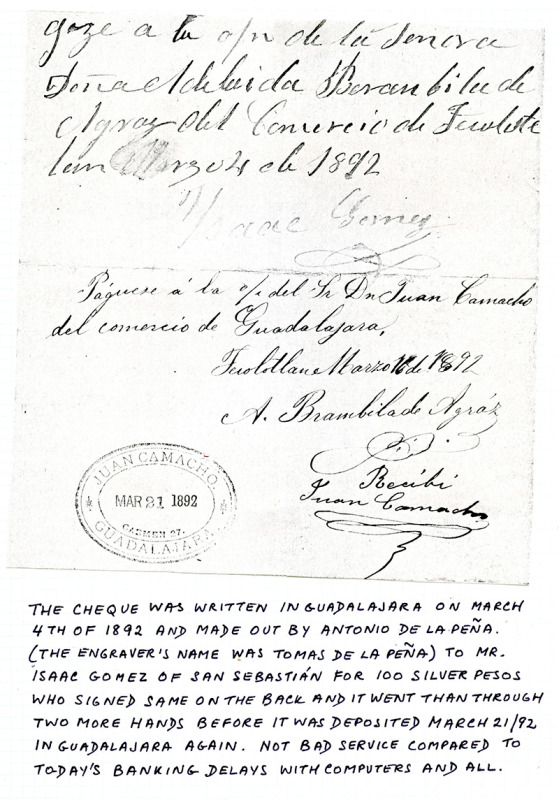 goze a la o/n de la Senora
Doña Adelaida Brambila de
Agraz del Comercio de Tecolotlan
Marzo 4 de 1892
Isaac Gomez
Páguese á la o/. del Sr Dn Juan Camacho
del comercio de Guadalajara,
Tecolotlan Marzo 16 de 1892
A. Brambila de Agráz
Recibí
Juan Camacho
JUAN CAMACHO.
MAR 21 1892
CARMEN 27.
GUADALAJARA
THE CHEQUE WAS WRITTEN IN GUADALAJARA ON MARCH
4TH OF 1892 AND MADE OUT BY ANTONIO DE LA PEÑA.
(THE ENGRAVER'S NAME WAS TOMAS DE LA PEÑA) TO MR.
ISAAC GOMEZ OF SAN SEBASTIÁN FOR 100 SILVER PESOS
WHO SIGNED SAME ON THE BACK AND IT WENT THAN THROUGH
TWO MORE HANDS BEFORE IT WAS DEPOSITED MARCH 21/92
IN GUADALAJARA AGAIN. NOT BAD SERVICE COMPARED TO
TODAY'S BANKING DELAYS WITH COMPUTERS AND ALL.